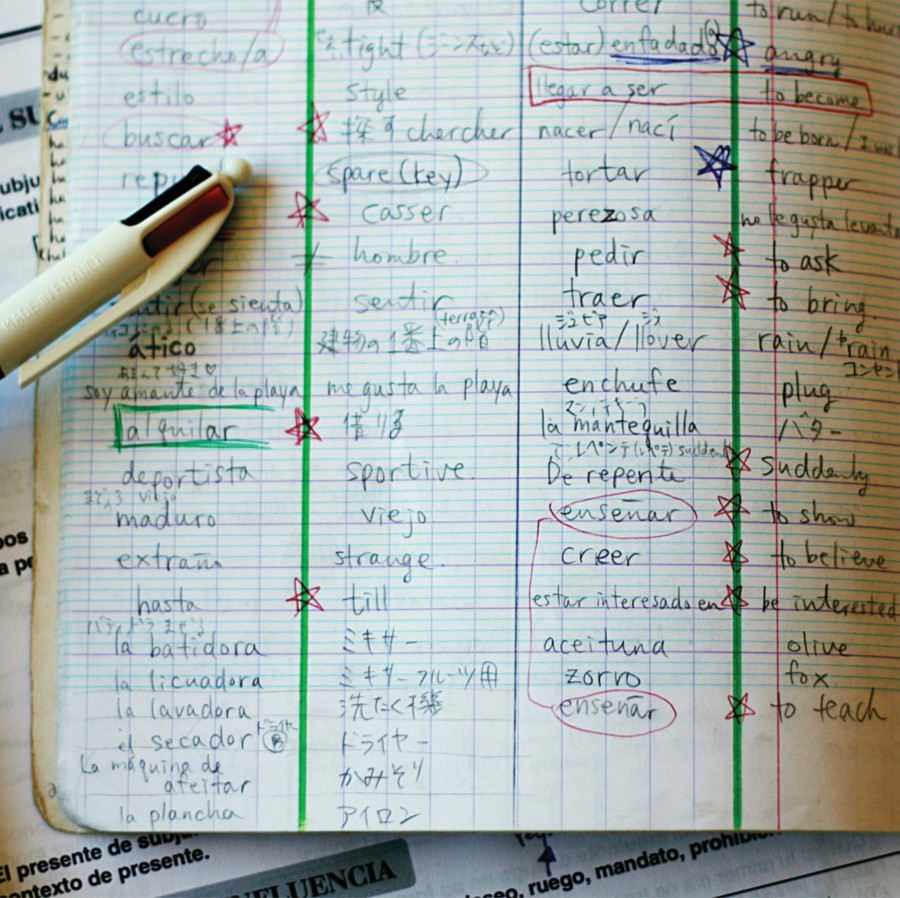 cuero
correr to run /
estrecho/a tight (ジーンズなど) (estar) enfadado angry
estilo style llegar a ser to become
buscar 探す chercher nacer / nací to be born /
spare (key) tortar frapper
casser perezosa no le gusta levanta
hombre pedir to ask
(se sienta) sentir traer to bring
(terraza) ジュビア
ático 建物の1番上の階 lluvia / llover rain / to rain
コンセント
soy amante de la playa me gusta la playa enchufe plug
alquilar 借りる la mantequilla バター
suddenly
deportista sportive. De repente Suddenly
viejo
maduro viejo enseñar to show
extraño strange. creer to believe
hasta till estar interesado en be interested
la batidora ミキサー aceituna olive
la licuadora ミキサーフルーツ用 zorro fox
la lavadora 洗たく機 enseñar to teach
el secador ドライヤー
La máquina de
afeitar かみそり
la plancha アイロン
MADE IN FRANCE
El presente de subju
contexto de presente.
NFLUENCIA
seo, ruego, mandato, prohibi